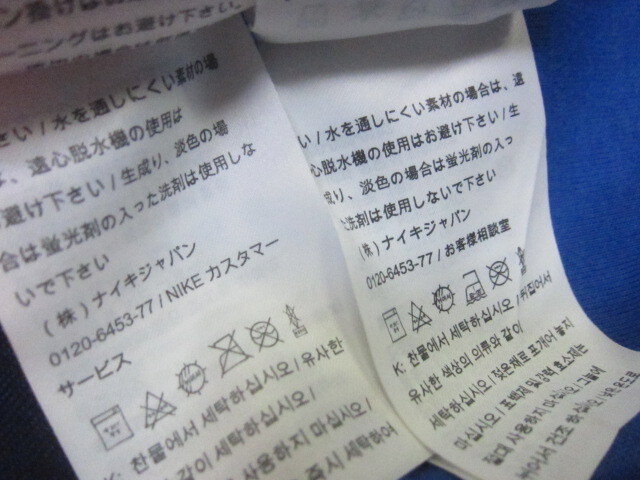 ン掛けは
ーニングはお避け下さい。
さい / 水を通しにくい素材の場
、遠心脱水機の使用は
お避け下さい / 生成り、淡色の場
合は蛍光剤の入った洗剤は使用しな
いで下さい
(株) ナイキジャパン
0120-6453-77 / NIKE カスタマー
サービス
K: 찬물에서 세탁하십시오 / 유사한
같이 세탁하십시오 /
사용하지 마십시오 /
즉시 세탁하여
い / 水を通しにくい素材の場合は、遠
心脱水機の使用はお避け下さい / 生
成り、淡色の場合は蛍光剤の入っ
た洗剤は使用しないで下さい
(株) ナイキジャパン
0120-6453-77 / お客様相談室
K: 찬물에서 세탁하십시오 / 뒤집어서
유사한 색상의 의류와 같이
세탁하십시오 / 젖은채로 포개어 놓지
마십시오 / 표백제 및 강력 효소제는
절대 사용하지 마십시오 / 그늘에
뉘어서 건조 하십시오